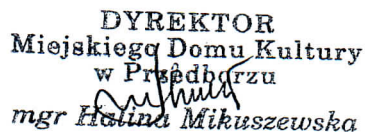 DYREKTOR
Miejskiego Domu Kultury
w Przedborzu
mgr Halina Mikuszewska